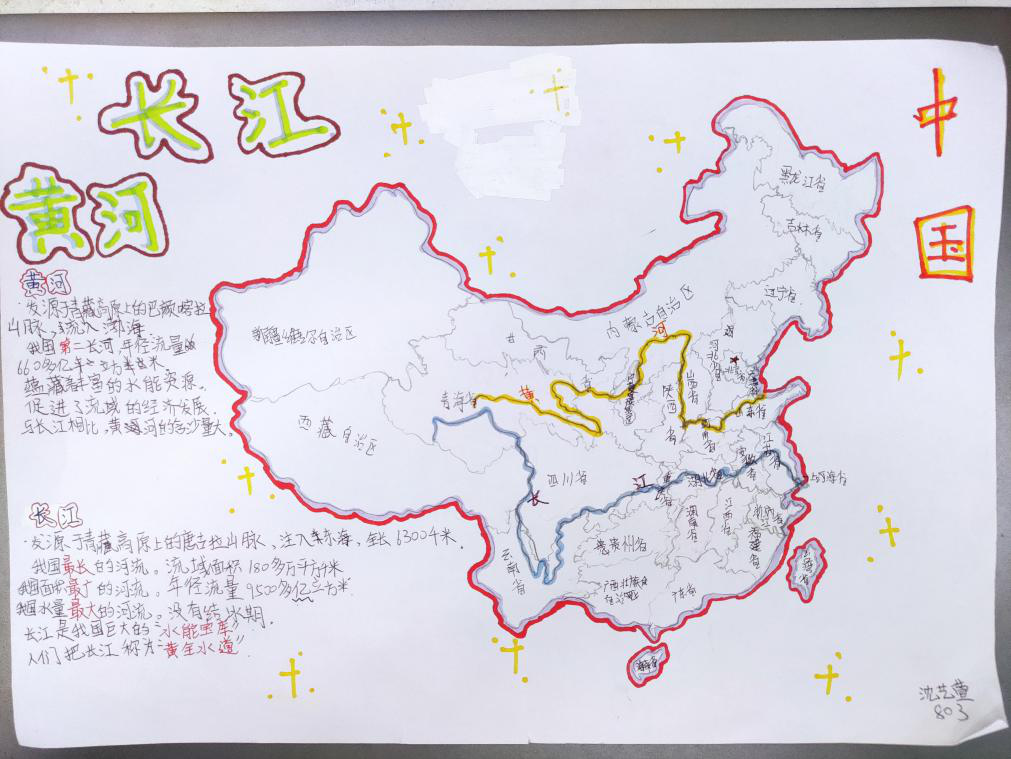 长江
中国
黄河
黄河
·发源于青藏高原上的巴颜喀拉
山脉，流入渤海
我国第二长河，年径流量
660多亿
蕴藏着丰富的水能资源。
促进了流域的经济发展。
与长江相比，黄河的含沙量大。
长江
·发源于青藏高原上的唐古拉山脉，注入东海，全长6300千米，
我国最长的河流。流域面积180多万平方千米
我国面积最广的河流。年径流量9500多亿立方米
我国水量最大的河流。没有结冰期。
长江是我国巨大的“水能宝库”，
人们把长江称为“黄金水道”
黑龙江省
吉林省
辽宁省
内蒙古自治区
新疆维吾尔自治区
甘
青海省
西藏自治区
黄
河
陕西省
山西省
河北省
山东省
河南省
江苏省
安徽省
上海
四川省
长
江
湖北省
湖南省
江西省
浙江
福建省
贵州省
云南省
广西壮族自治区
广东省
台湾省
海南省
沈艺萱
803